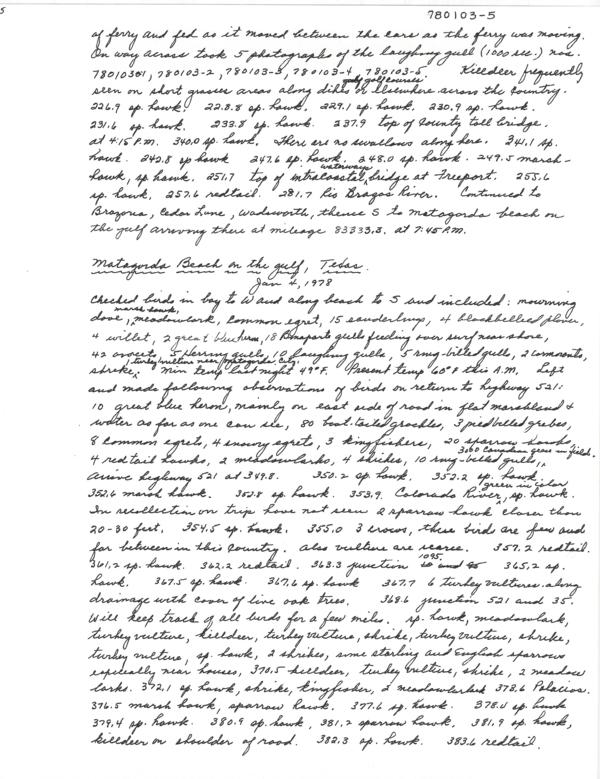 5
780103-5
of ferry and fed as it moved between the cars as the ferry was moving.
On way across took 5 photographs of the laughing gull (1000 sec.) nos.
78010301, 780103-2, 780103-3, 780103-4, 780103-5. Killdeer frequently
golf courses
seen on short grasses areas along dikes or elsewhere across the country.
226.9 sp. hawk. 228.8 sp. hawk. 229.1 sp. hawk. 230.9 sp. hawk.
231.6 sp. hawk. 233.8 sp. hawk. 237.9 top of County toll bridge.
at 4:15 P.M. 240.0 sp. hawk. There are no swallows along here. 241.1 sp.
hawk. 242.8 sp hawk 247.6 sp. hawk. 248.0 sp. hawk. 249.5 marsh-
waterway
hawk, sp. hawk. 251.7 top of intracoastal bridge at Freeport. 255.6
sp. hawk. 257.6 redtail. 281.7 Rio Brazos River. Continued to
Brazoria, Cedar Lane, Wadsworth, thence S to Matagorda beach on
the gulf arriving there at mileage 83333.3. at 7:45 P.M.
Matagorda Beach on the gulf, Texas.
Jan 4, 1978
Checked birds in bay to W and along beach to S and included: mourning
marsh hawk,
dove, meadowlark, common egret, 15 sanderlings, 4 blackbellied plover,
4 willet, 2 great blue heron, 18 Bonaparte gulls feeding over surf near shore,
42 avocets, 5 Herring gulls, 10 laughing gulls, 5 ring-billed gulls, 2 cormorants,
turkey vulture near Matagorda City.
shrike. Min temp last night 49°F. Present temp 60°F this A.M. Left
and made following observations of birds on return to highway 521:
10 great blue heron, mainly on east side of road in flat marshland &
water as far as one can see, 80 boat-tailed grackles, 3 pied billed grebes,
8 common egrets, 4 snowy egrets, 3 kingfishers, 20 sparrow hawks,
3000 Canadian geese in field.
4 red tail hawks, 2 meadowlarks, 4 shrikes, 10 ring-billed gulls,
Arrive highway 521 at 349.8. 350.2 sp. hawk. 352.2 sp. hawk
green in color
352.6 marsh hawk. 352.8 sp. hawk. 353.9. Colorado River, sp. hawk.
In recollection on trip have not seen a sparrow hawk closer than
20-30 feet. 354.5 sp. hawk. 355.0 3 crows, these bird are few and
far between in this country. Also vulture are scarce. 357.2 redtail.
1095.
361.2 sp. hawk. 362.2 redtail. 363.3 junction 365.2 sp.
hawk. 367.5 sp. hawk. 367.6 sp. hawk 367.7 6 turkey vultures along
drainage with cover of live oak trees. 368.6 junction 521 and 35.
Will keep track of all birds for a few miles. sp. hawk, meadowlark,
turkey vulture, killdeer, turkey vulture, shrike, turkey vulture, shrike,
turkey vulture, sp. hawk, 2 shrikes, some starling and English sparrows
especially near houses, 370.5 killdeer, turkey vulture, shrike, 2 meadow
larks. 372.1 sp. hawk, shrike, kingfisher, 2 meadowlarks 373.6 Palacios.
376.5 marsh hawk, sparrow hawk. 377.6 sp. hawk. 378.4 sp. hawk
379.4 sp. hawk. 380.9 sp. hawk, 381.2 sparrow hawk. 381.9 sp. hawk,
killdeer on shoulder of road. 382.3 sp. hawk. 383.6 redtail.